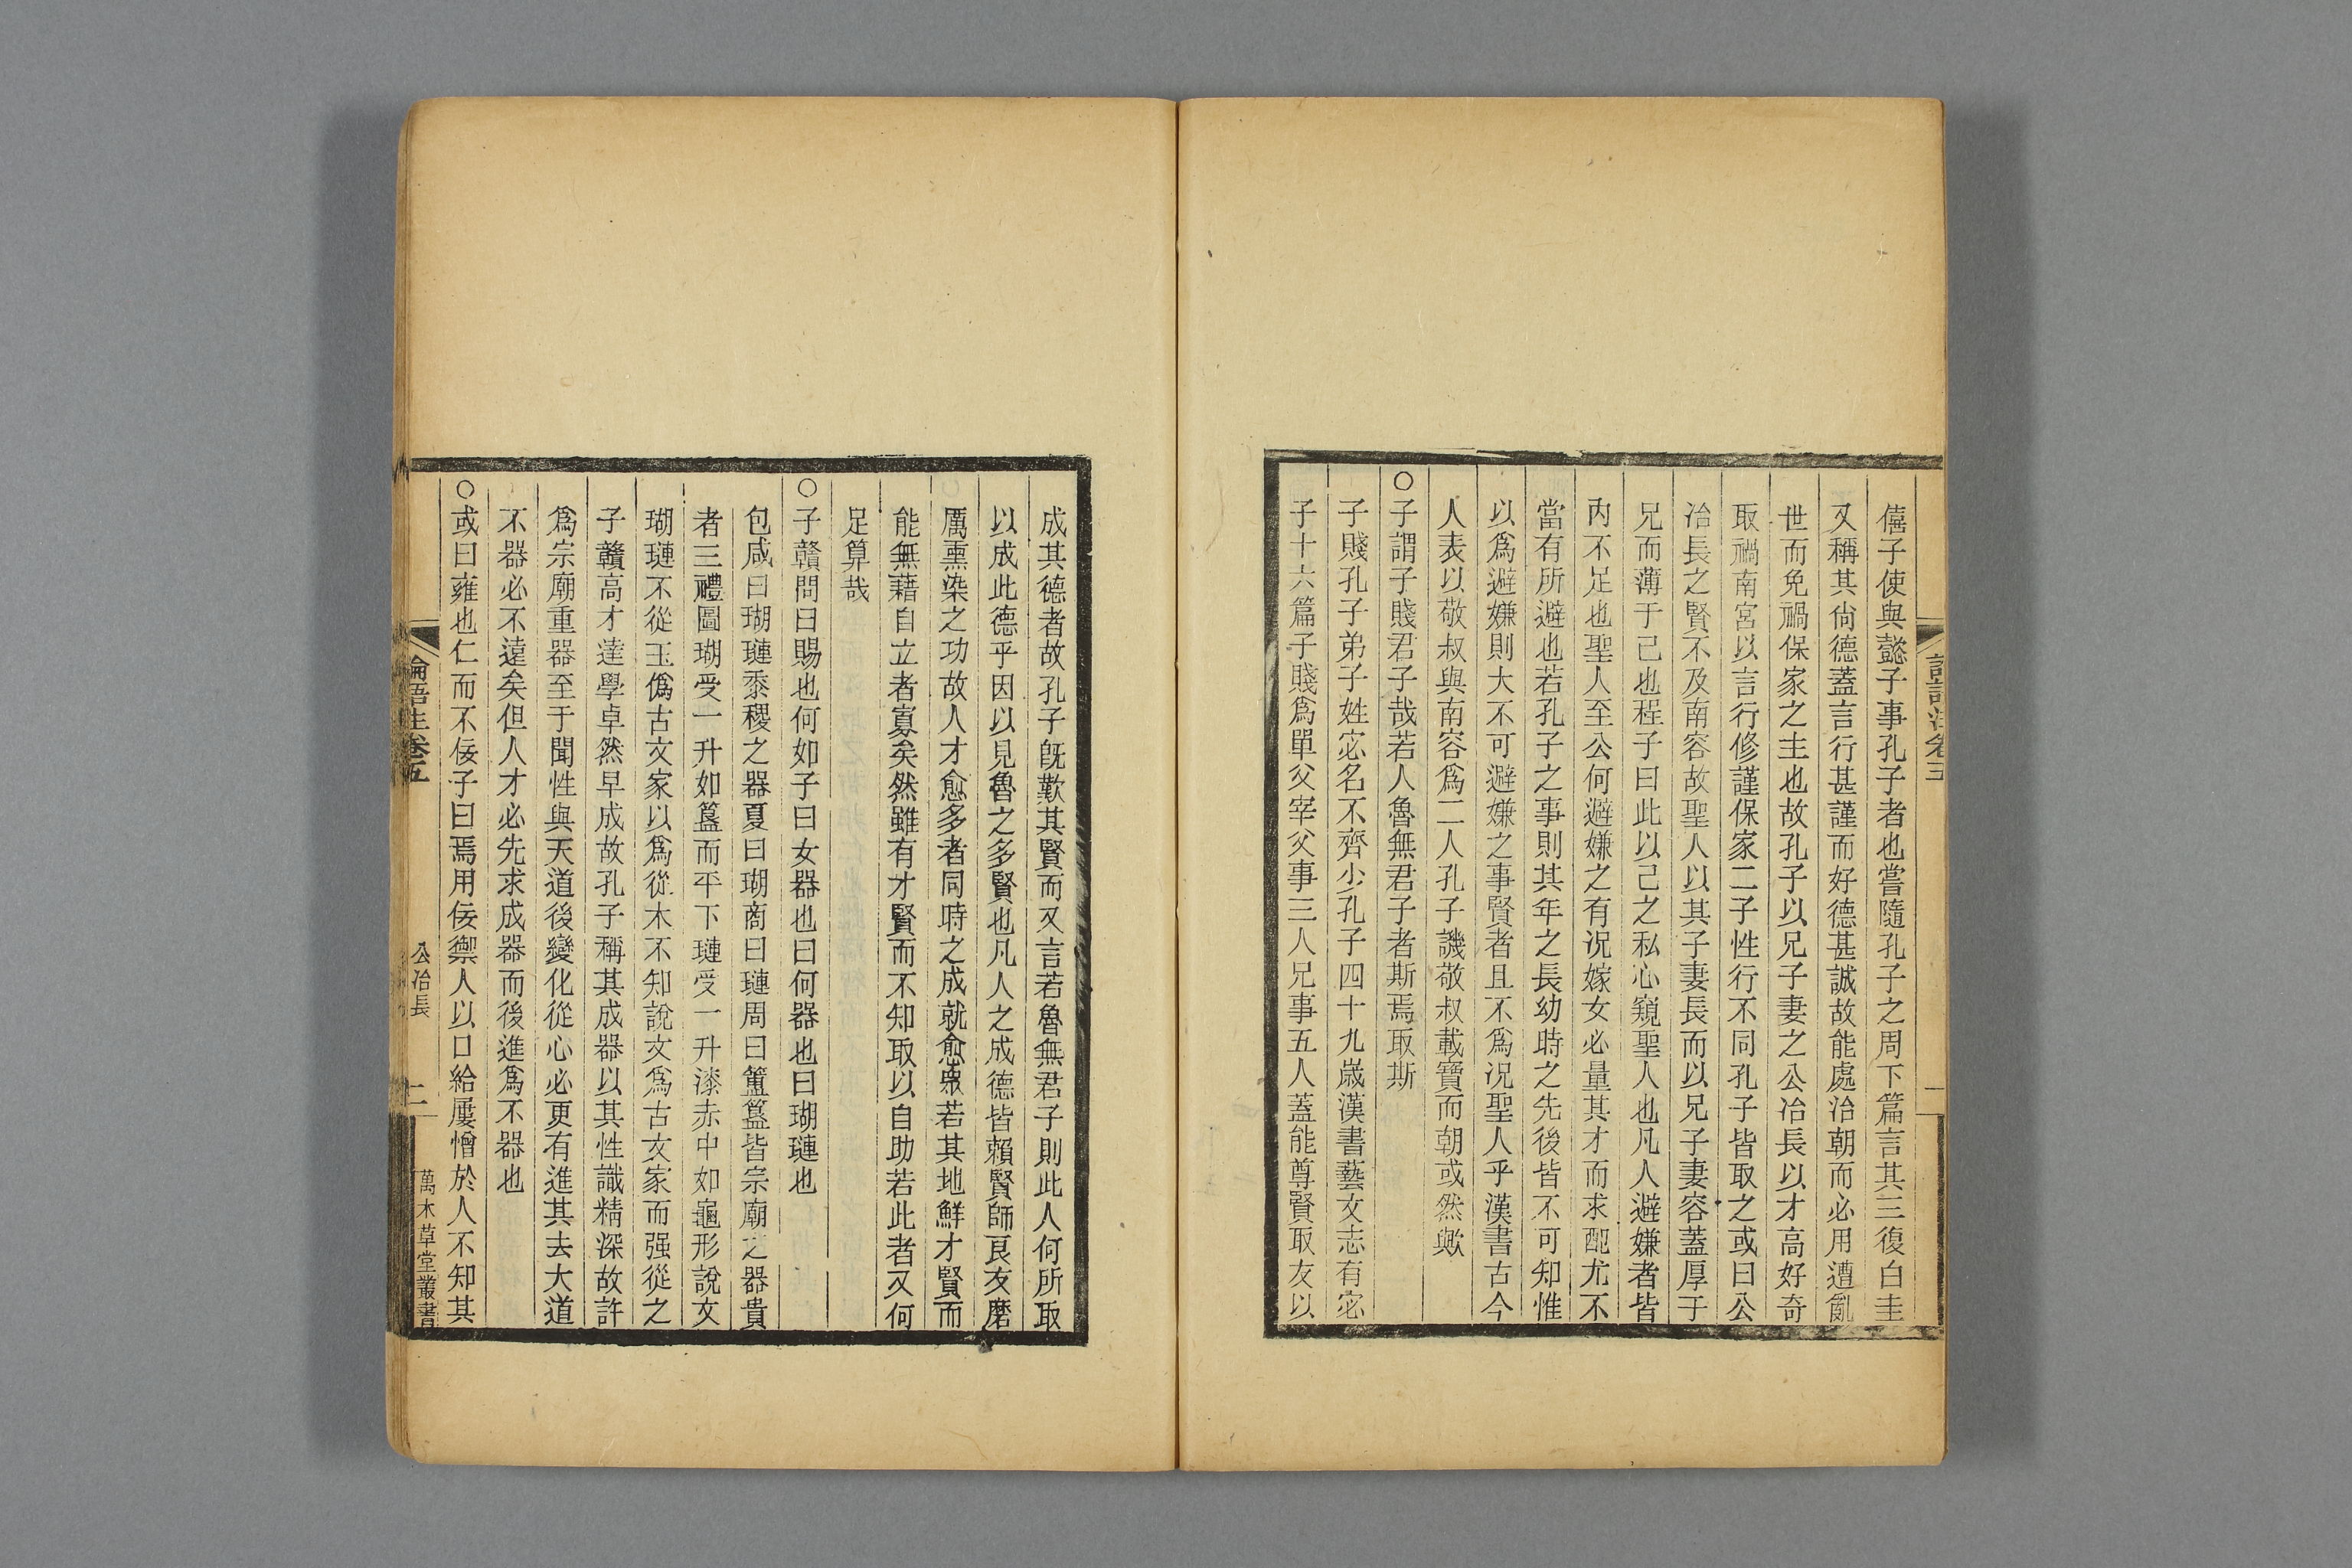 僖子使與懿子事孔子者也嘗隨孔子之周下篇言其三復白圭
又稱其尙德蓋言行甚謹而好德甚誠故能處治朝而必用遭亂
世而免禍保家之主也故孔子以兄子妻之公冶長以才高好奇
取禍南宮以言行修謹保家二子性行不同孔子皆取之或曰公
冶長之賢不及南容故聖人以其子妻長而以兄子妻容蓋厚于
兄而薄于己也程子曰此以己之私心窺聖人也凡人避嫌者皆
內不足也聖人至公何避嫌之有況嫁女必量其才而求配尤不
當有所避也若孔子之事則其年之長幼時之先後皆不可知惟
以爲避嫌則大不可避嫌之事賢者且不爲況聖人乎漢書古今
人表以敬叔與南容爲二人孔子譏敬叔載寶而朝或然歟
○子謂子賤君子哉若人魯無君子者斯焉取斯
子賤孔子弟子姓宓名不齊少孔子四十九歲漢書藝文志有宓
子十六篇子賤爲單父宰父事三人兄事五人蓋能尊賢取友以
成其德者故孔子旣歎其賢而又言若魯無君子則此人何所取
以成此德乎因以見魯之多賢也凡人之成德皆賴賢師良友磨
厲熏染之功故人才愈多者同時之成就愈衆若其地鮮才賢而
能無藉自立者寡矣然雖有才賢而不知取以自助若此者又何
足算哉
○子贛問曰賜也何如子曰女器也曰何器也曰瑚璉也
包咸曰瑚璉黍稷之器夏曰瑚商曰璉周曰簠簋皆宗廟之器貴
者三禮圖瑚受一升如簋而平下璉受一升漆赤中如龜形說文
瑚璉不從玉僞古文家以爲從木不知說文爲古文家而强從之
子贛高才達學卓然早成故孔子稱其成器以其性識精深故許
爲宗廟重器至于聞性與天道後變化從心必更有進其去大道
不器必不遠矣但人才必先求成器而後進爲不器也
○或曰雍也仁而不佞子曰焉用佞禦人以口給屢憎於人不知其
論語注卷五
公冶長
二
萬木草堂叢書